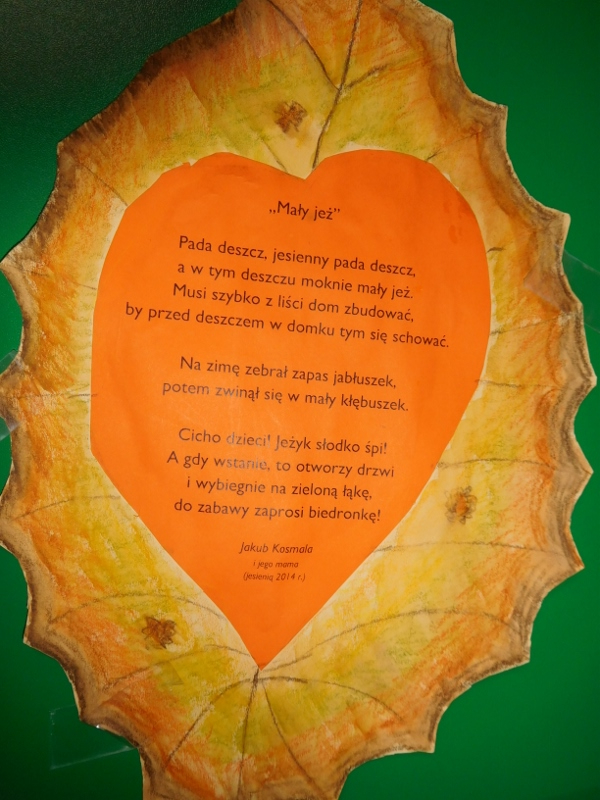 „Mały jeż”
Pada deszcz, jesienny pada deszcz,
a w tym deszczu moknie mały jeż.
Musi szybko z liści dom zbudować,
by przed deszczem w domku tym się schować.
Na zimę zebrał zapas jabłuszek,
potem zwinął się w mały kłębuszek.
Cicho dzieci! Jeżyk słodko śpi!
A gdy wstanie, to otworzy drzwi
i wybiegnie na zieloną łąkę,
do zabawy zaprosi biedronkę!
Jakub Kosmala
i jego mama
(jesienią 2014 r.)